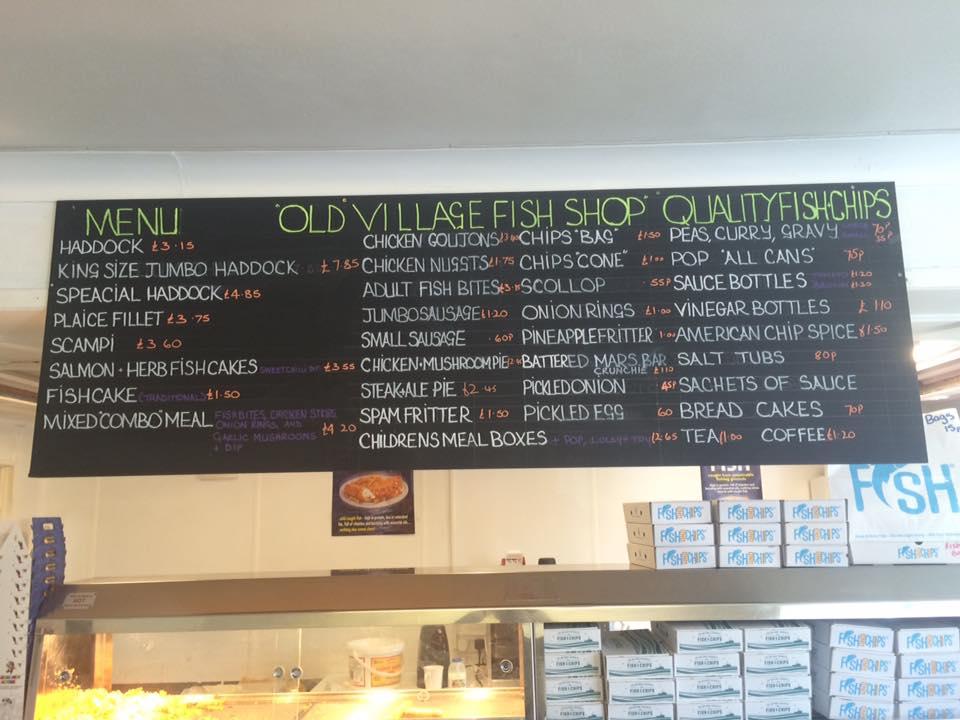 MENU "OLD VILLAGE FISH SHOP" QUALITY FISH+CHIPS
HADDOCK £3.15
KING SIZE JUMBO HADDOCK £7.85
SPEACIAL HADDOCK £4.85
PLAICE FILLET £3.75
SCAMPI £3 60
SALMON + HERB FISHCAKES SWEET CHILLI DIP £3.55
FISHCAKE (TRADITIONAL) £1.50
MIXED "COMBO" MEAL FISHBITES, CHICKEN STRIPS,
ONION RINGS, AND
GARLIC MUSHROOMS
+ DIP £4 20
CHICKEN GOUJONS
CHICKEN NUGGTS £1.75
ADULT FISH BITES
JUMBO SAUSAGE £1.20
SMALL SAUSAGE .60P
CHICKEN+MUSHROOM PIE
STEAK+ALE PIE £2 45
SPAM FRITTER £1.50
CHILDRENS MEAL BOXES + POP, LOLLY+ TOY £2.65
CHIPS "BAG" £1.50
CHIPS "CONE" £1.00
SCOLLOP .55P
ONION RINGS £1.00
PINEAPPLE FRITTER 1.00
BATTERED MARS BAR
CRUNCHIE £1.10
PICKLED ONION 45P
PICKLED EGG 60
PEAS, CURRY, GRAVY 70P
35P
POP "ALL CANS" 75P
SAUCE BOTTLES TOMATO £1.20
BROWN £1.20
VINEGAR BOTTLES £1.10
AMERICAN CHIP SPICE £1.50
SALT TUBS 80P
SACHETS OF SAUCE
BREAD CAKES 70P
TEA £1.00 COFFEE £1.20
BAGS
15P
FISH
FISH
FISH&CHIPS FISH&CHIPS FISH&CHIPS
FISH&CHIPS FISH&CHIPS FISH&CHIPS
FISH&CHIPS FISH&CHIPS FISH&CHIPS
FISH&CHIPS
FISH & CHIPS FISH & CHIPS FISH & CHIPS FISH & CHIPS FISH&CHIPS FISH&CHIPS